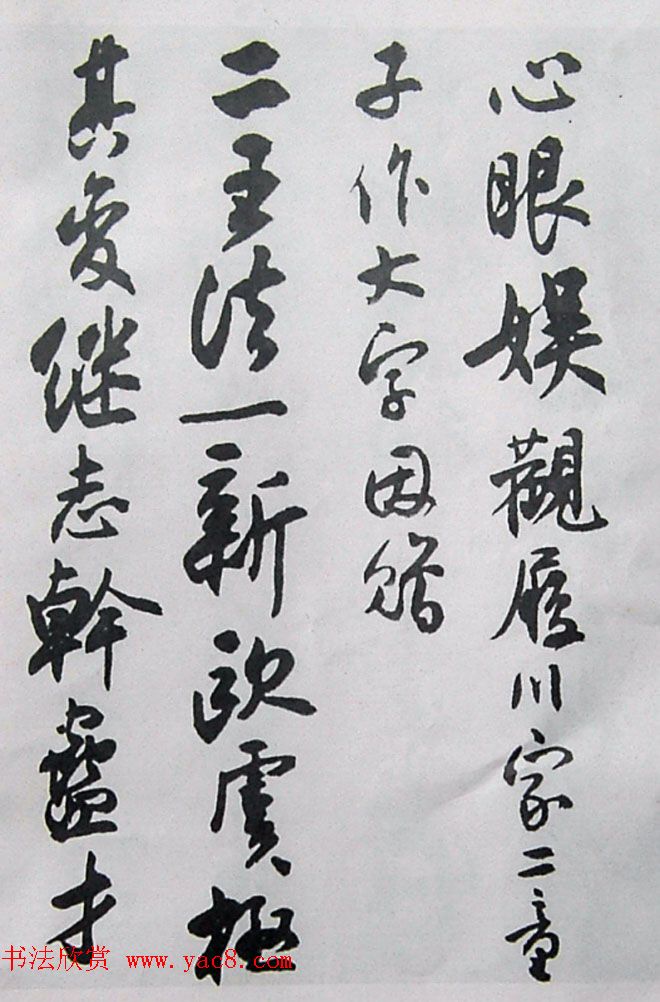 心眼娱觀履川家二童
子作大字因贈
二王法一新欧虞極
其變继志幹蠱才
书法欣赏 www.yac8.com